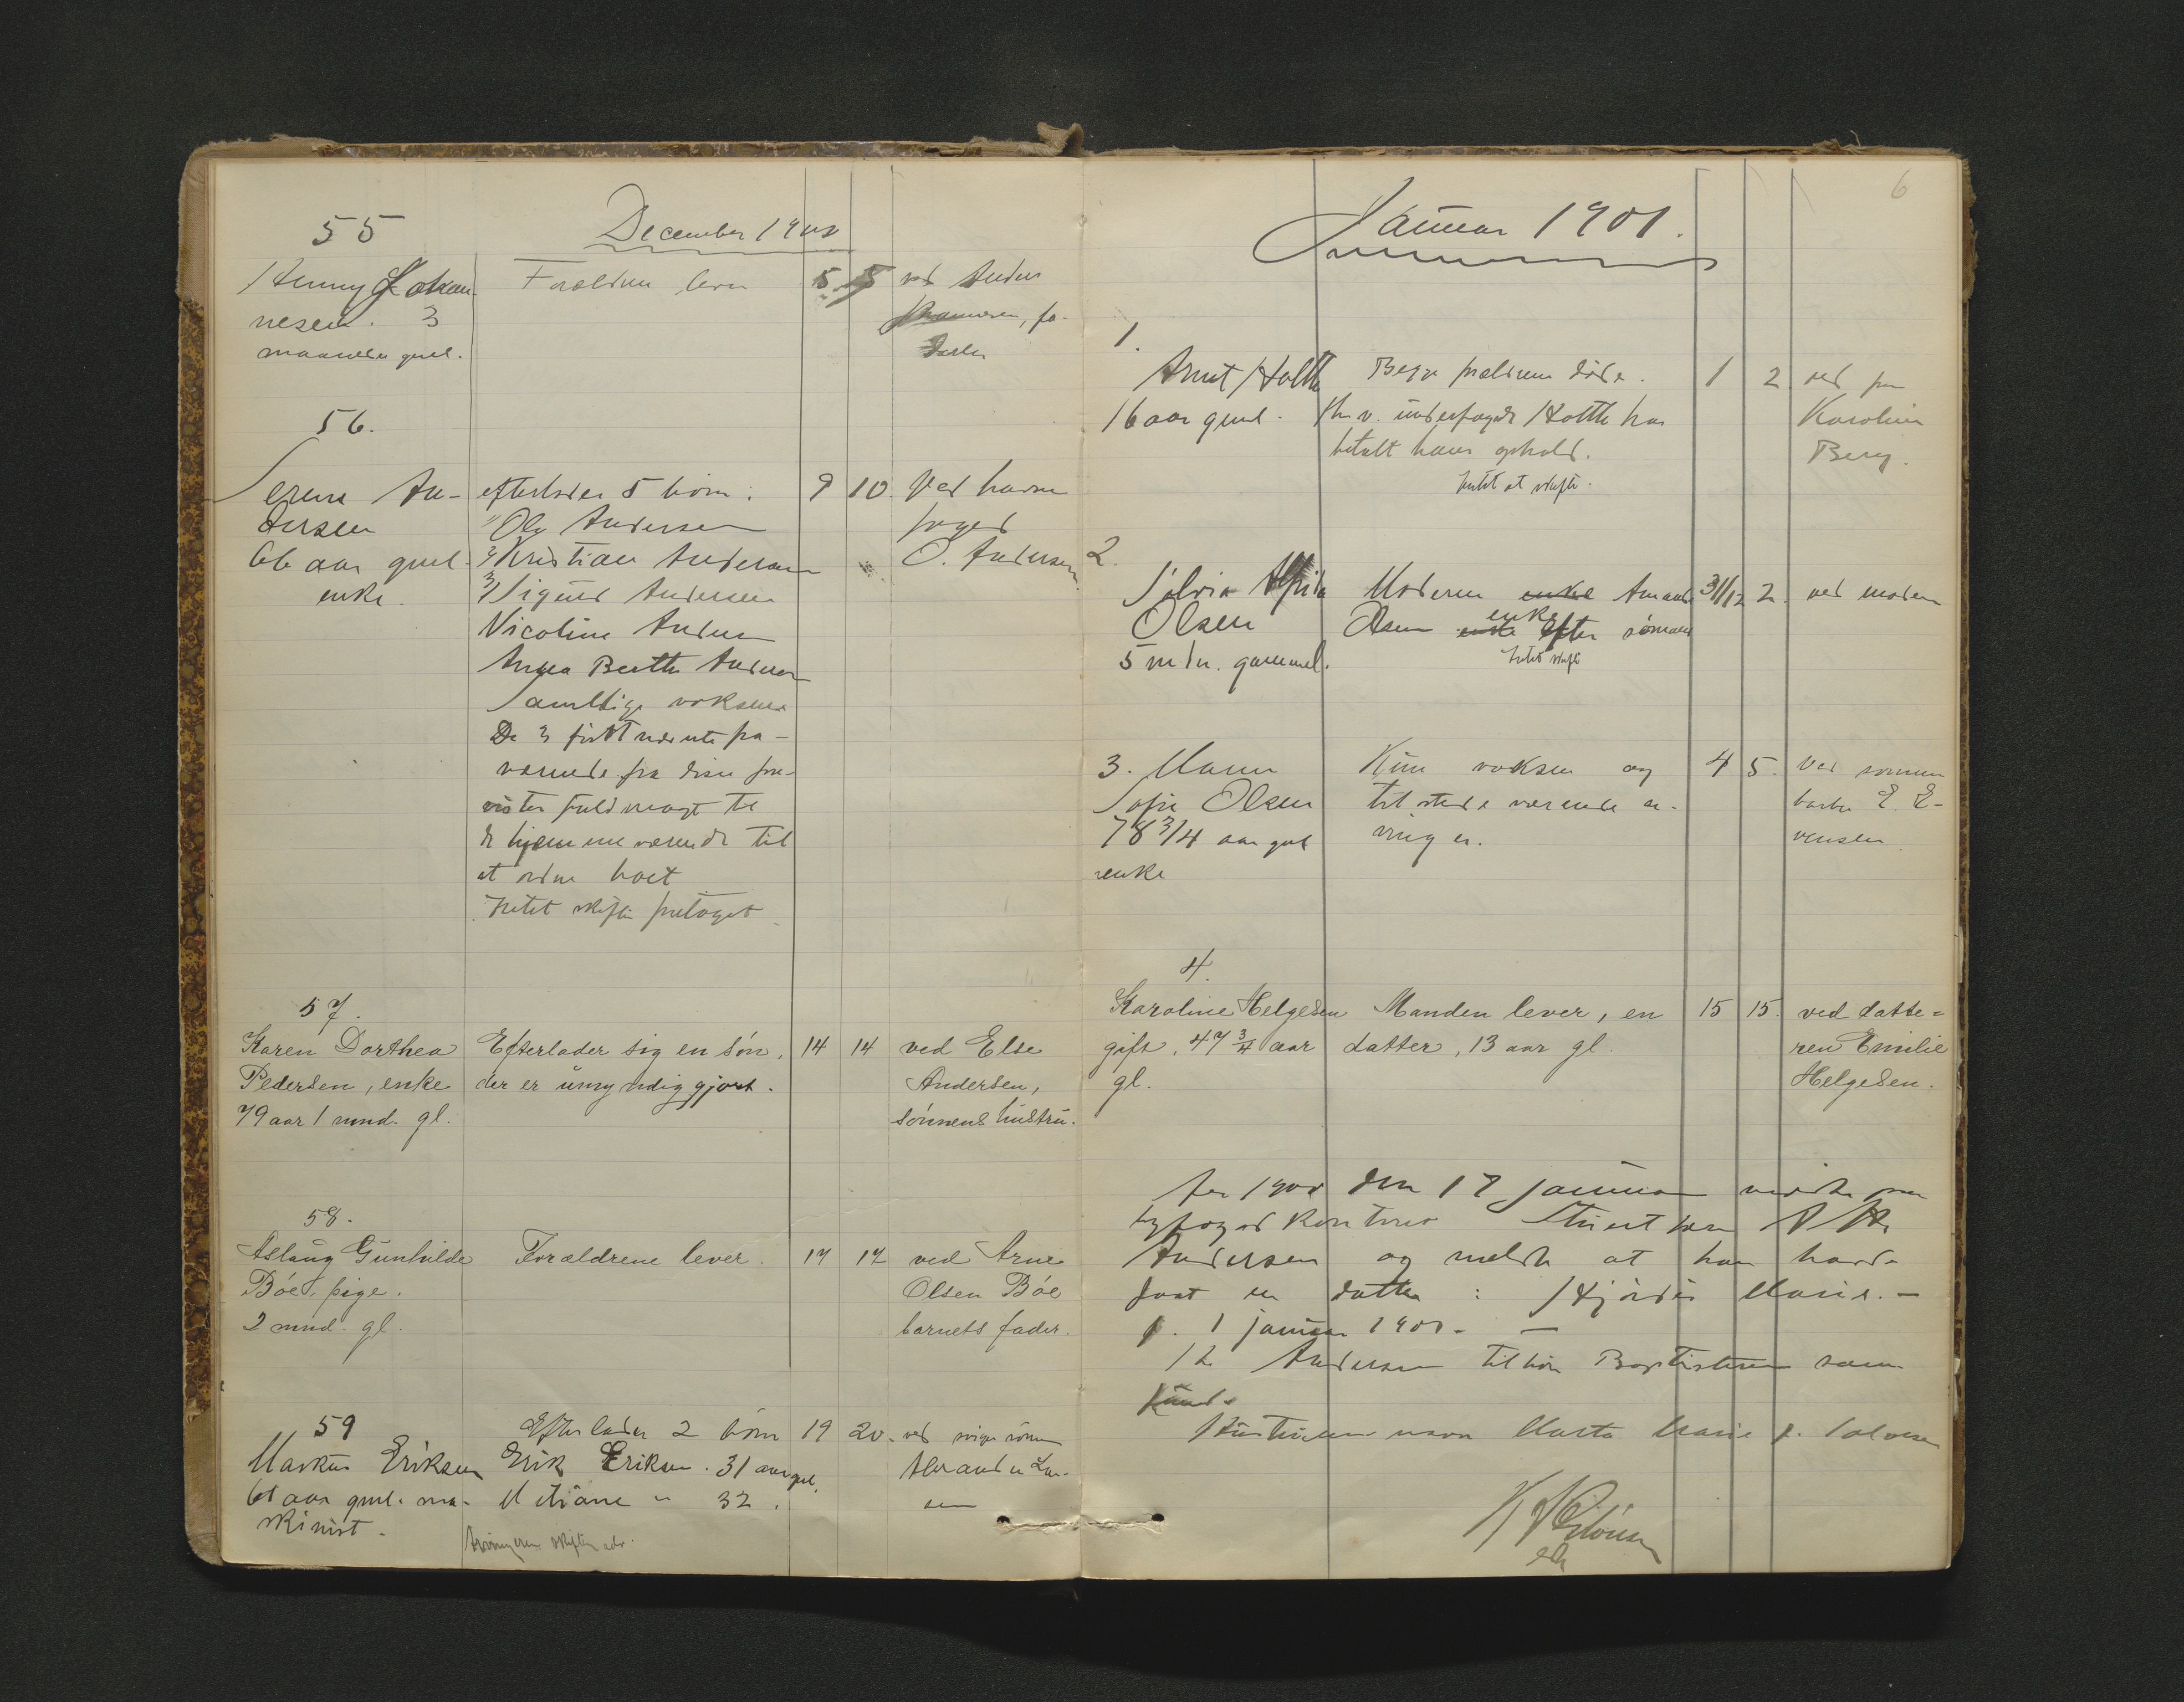 55
December 1900
Henny Johan-
nesen. 3
maaneder gml.
Forældrene lever
5 5
ved Anders
Johannesen, fa-
deren
56.
Serene An-
dersen
66 aar gml.
enke.
efterlader 5 børn:
1) Ole Andersen
2) Kristian Andersen
3) Sigurd Andersen
Nicoline Andersen
Anna Berthe Andersen
Samtlige voksne
De 3 første nævnte fra-
værende fra disse fore-
vistes fuldmagt til
de hjemmeværende til
at ordne boet
Intet skifte foretaget
9 10.
Ved havne
foged
O. Andersen
57.
Karen Dorthea
Pedersen, enke
79 aar 1 mnd. gl.
Efterlader sig en søn,
der er umyndiggjort.
14 14
ved Else
Andersen,
sønnens hustru.
58.
Aslaug Gunhilde
Bóe, pige.
2 mnd. gl.
Forældrene lever.
17 17
ved Arne
Olsen Bóe
barnets fader.
59
Markus Eriksen
61 aar gml. ma-
skinist.
Efterlader 2 børn
Erik Eriksen. 31 aar gml.
" 32.
Arvingerne skifter selv.
19 20.
ved svigersønnen
Alexander Lar-
sen
6
Januar 1901.
1.
Arnt Holth
16 aar gml.
Begge forældrene døde.
Holth har
betalt hans ophold.
Intet at skifte.
1 2
ved fru
Karoline
Berg.
2.
Solvia Alfrida
Olsen
5 mdr. gammel.
Moderen enke Amanda
Olsen enke enke efter sømand
Intet skifte
31/12 2.
ved moderen
3. Maren
Sofie Olsen
78 3/4 aar gml
enke
Kun voksne og
tilstedeværende ar-
vinger.
4 5.
Ved sønnen
E. E-
vensen
4.
Karoline Helgesen
gift, 47 3/4 aar
gl.
Manden lever, en
datter, 13 aar gl.
15 15.
ved datte=
ren Emilie
Helgesen.
Aar 1901 den 17 januar mødte paa
byfogedkontoret
Andersen og meldte at han havde
faaet en datter: Hjørdis Marie. —
f. 1 januar 1901. —
Hr. Andersen tilhører Baptisternes sam-
fund.
Hustruens navn Marta Marie f. Salvesen